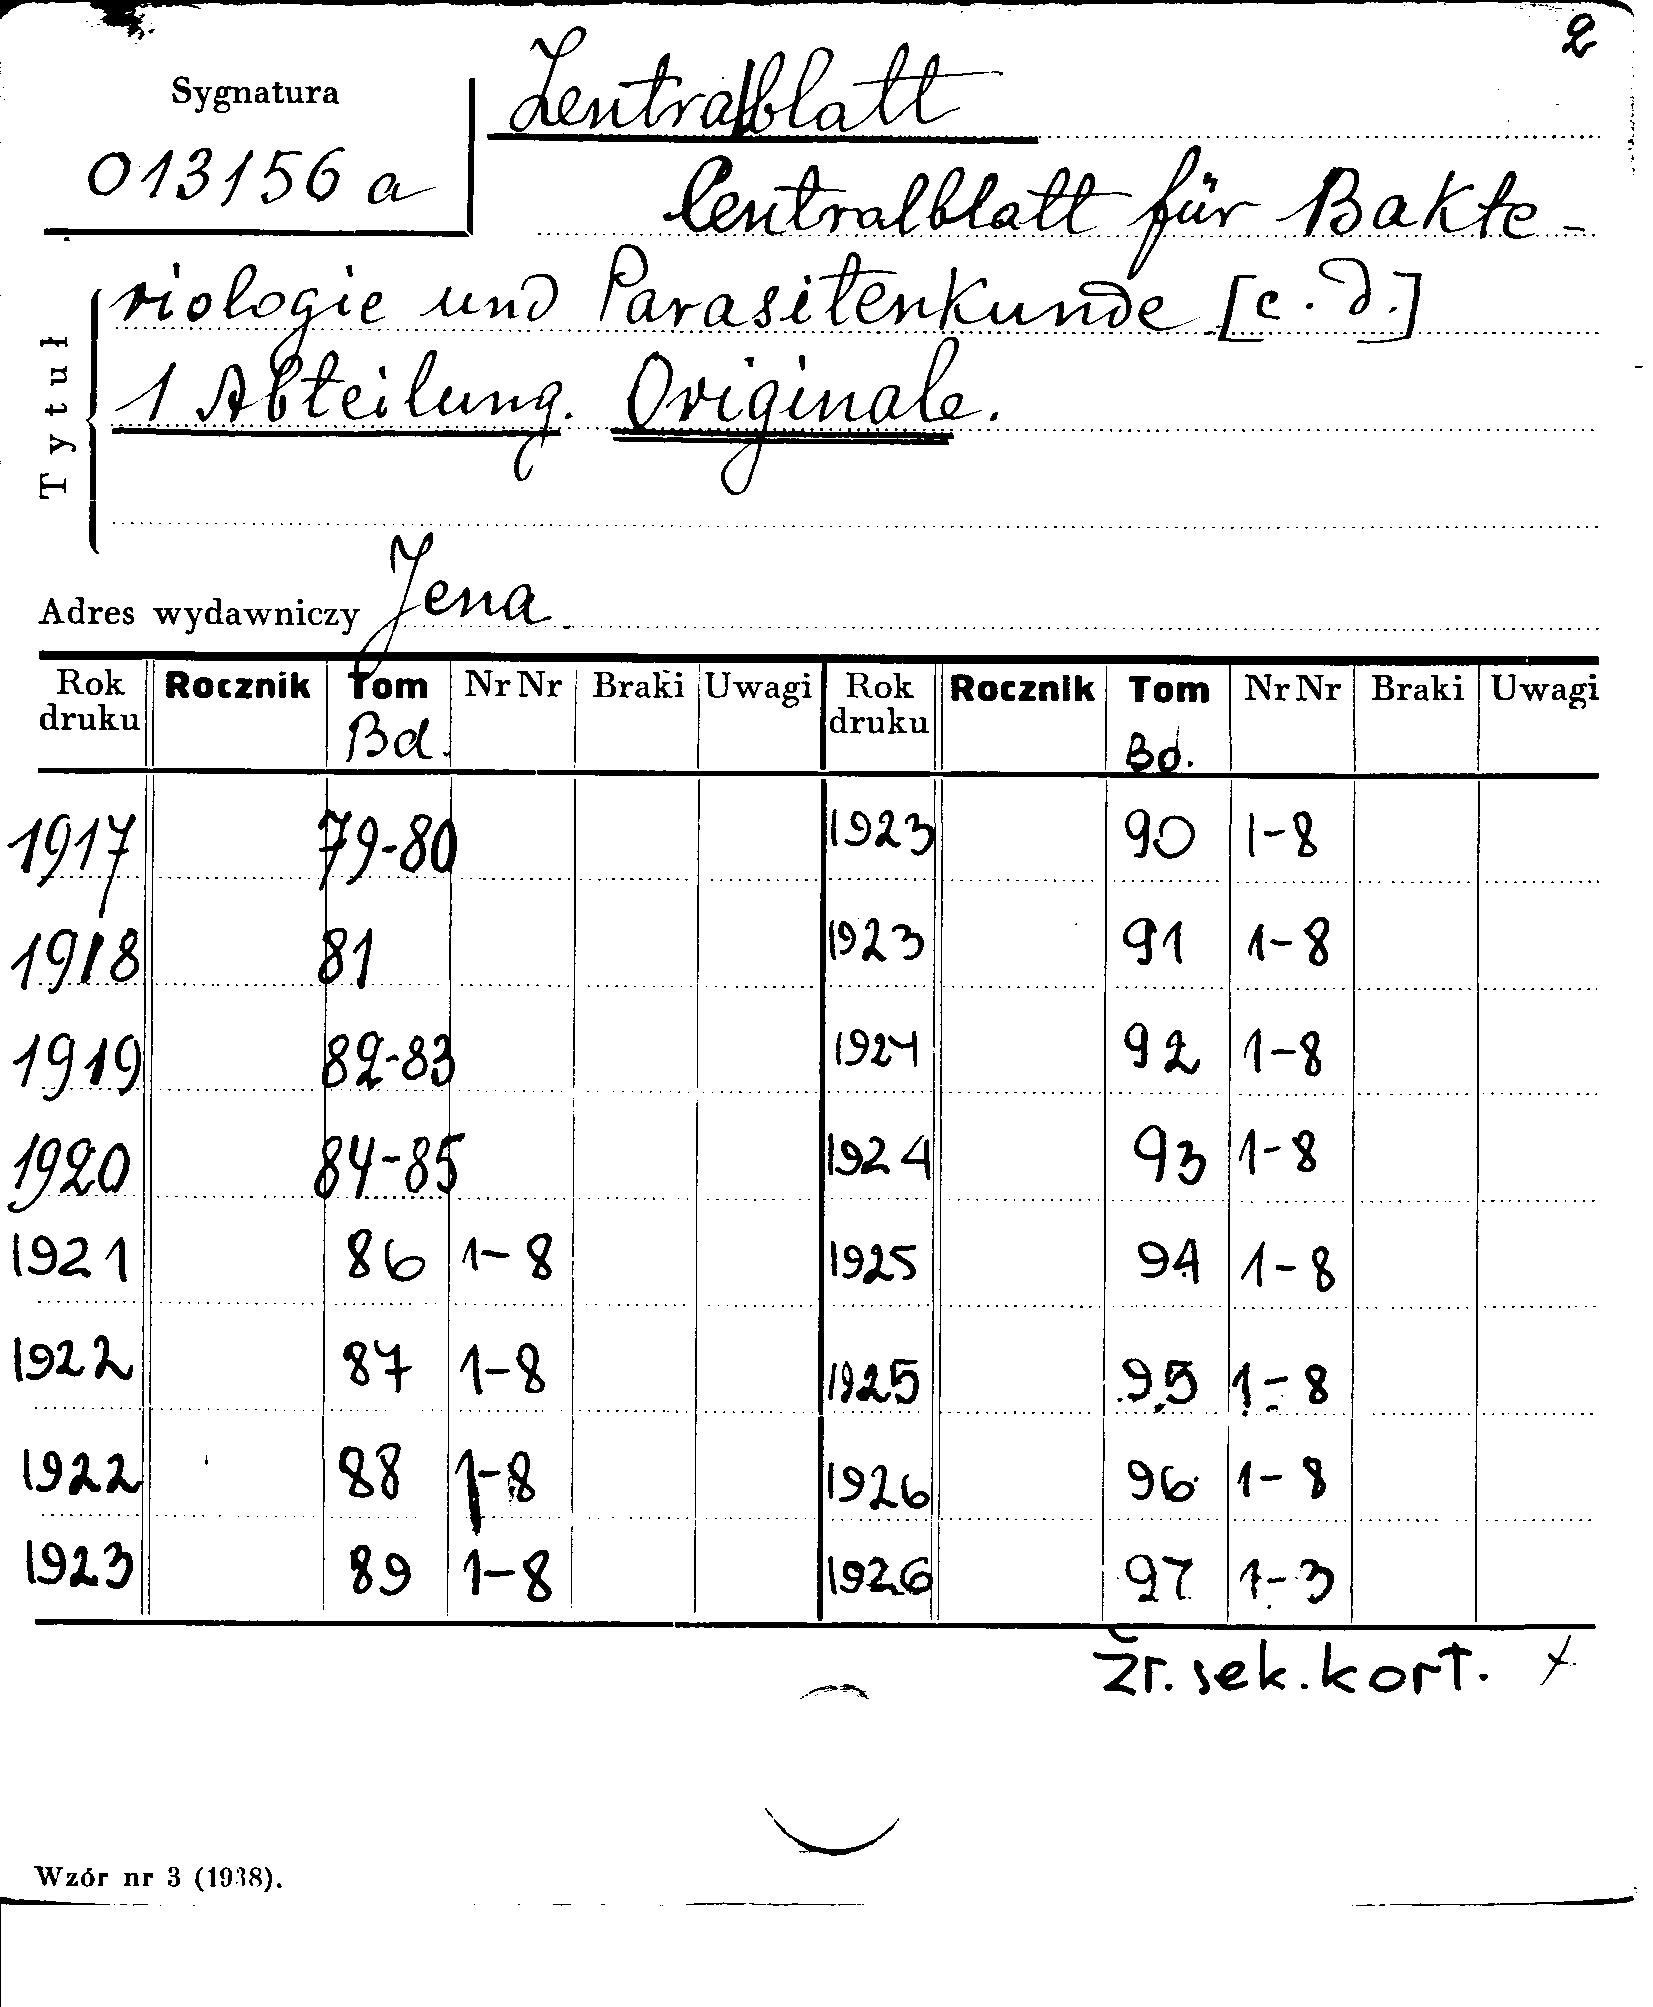 2
Sygnatura
013156 a
Zentralblatt
Centralblatt für Bakte-
riologie und Parasitenkunde [c. d.]
1 Abteilung. Originale.
Tytuł
Adres wydawniczy Jena
Rok druku Rocznik Tom Bd. Nr Nr Braki Uwagi Rok druku Rocznik Tom Bd. Nr Nr Braki Uwagi
1917 79-80 1923 90 1-8
1918 81 1923 91 1-8
1919 82-83 1924 92 1-8
1920 84-85 1924 93 1-8
1921 86 1-8 1925 94 1-8
1922 87 1-8 1925 95 1-8
1922 88 1-8 1926 96 1-8
1923 89 1-8 1926 97 1-3
Źr. sek. kort.
Wzór nr 3 (1938).